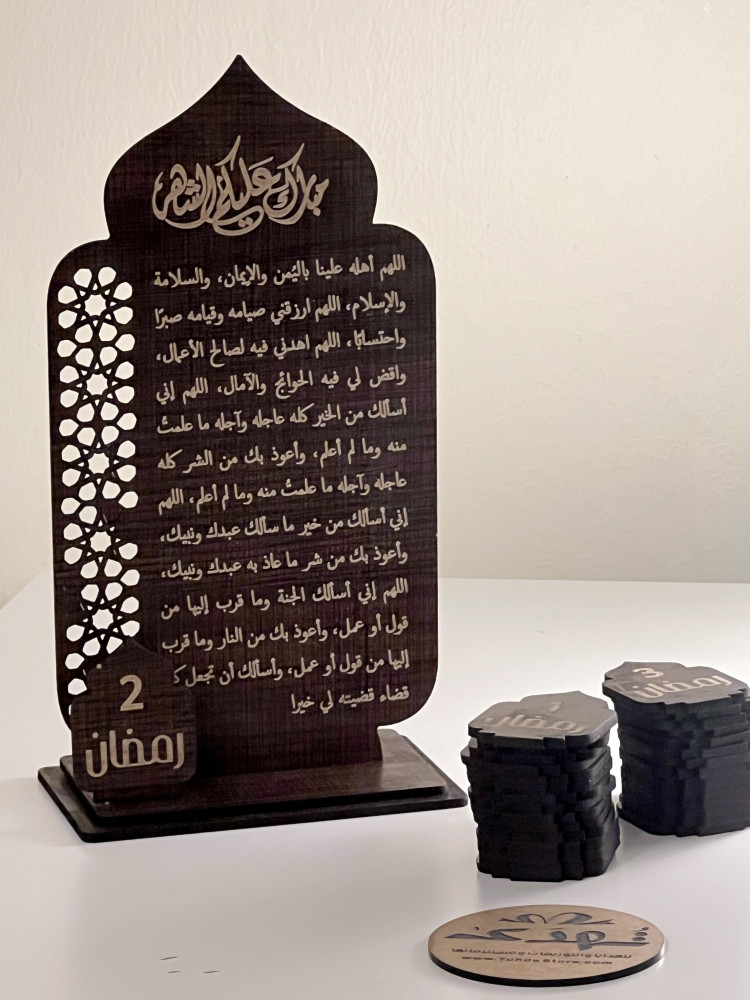 مبارك عليكم الشهر
اللهم أهله علينا باليُمن والإيمان، والسلامة
والإسلام، اللهم ارزقني صيامه وقيامه صبرًا
واحتسابًا، اللهم اهدني فيه لصالح الأعمال،
واقض لي فيه الحوائج والآمال، اللهم إني
أسألك من الخير كله عاجله وآجله ما علمتُ
منه وما لم أعلم، وأعوذ بك من الشر كله
عاجله وآجله ما علمتُ منه وما لم أعلم، اللهم
إني أسألك من خير ما سألك عبدك ونبيك،
وأعوذ بك من شر ما عاذ به عبدك ونبيك،
اللهم إني أسألك الجنة وما قرب إليها من
قول أو عمل، وأعوذ بك من النار وما قرب
إليها من قول أو عمل، وأسألك أن تجعل ك
قضاء قضيته لي خيرا
2
رمضان
1
رمضان
3
رمضان
للهدايا والتوزيعات ومستلزماتها